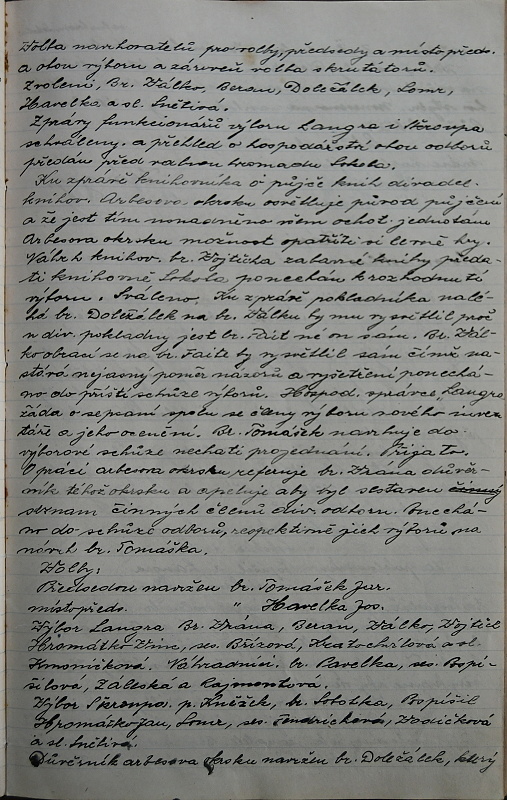 Volba navrhovatelů pro volby, předsedy a místopředs.
a obou výboru a zároveň volba skrutátorů.
Zvoleni, Br. Válko, Beran, Doležálek, Somr,
Havelka a sl. Snětivá.
Zprávy funkcionářů výboru Langra i Škroupa
schváleny. a přehled o hospodářství obou odborů
předán před valnou hromadu Sokola.
Ku zprávě knihovníka o půjčc knih divadel.
knihov. Arbesova okrsku osvětluje původ půjčení
a že jest tím usnadněno všem ochot. jednotám
Arbesova okrsku možnost opatřiti si levně hry.
Návrh knihov. br. Vojtěcha zabavné knihy předa-
ti knihovně Sokola ponechán k rozhodnutí
výboru. Sváleno. Ku zprávě pokladníka nalé-
há br. Doležálek na br. Válku by mu vysvětlil proč
v div. pokladny jest br. Fait né on sám. Br. Vál-
ko obrací se na br. Faita by vysvětlil sám čímž na-
stává nejasný poměr názorů a vyšetření ponechá-
no do příští schůze výborů. Hospod. správce „Langra
žádá o sepsaní spolu se členy výboru nového inven-
táře a jeho ocenění. Br. Tomášek navrhuje do
výborové schůze nechati projednání. Přijato.
O práci arbesova okrsku referuje br. Vrána důvěr-
ník téhož okrsku a apeluje aby byl sestaven
seznam činných členů div. odboru. Ponechá-
no do schůze odborů, respektivně jich výborů na
návrh br. Tomáška.
Volby:
Předsedou navržen br. Tomášek Jar.
místopředs. " Havelka Jos.
Výbor Langra Br. Vrána, Beran, Válko, Vojtěch
Hromátko Vinc, ses. Břízová, Kratochvílová a sl.
Náhradníci. br. Pavelka, ses. Pospí-
šilová, Záleská a
Výbor Škroupa. p. Kněžek, br. Sobotka, Pospíšil
Hromátko Jan, Somr, ses. Vodičková
a sl. Snětivá.
Důvěrník arbesova okrsku navržen br. Doležálek, který